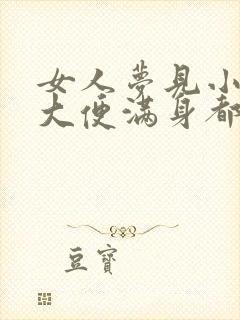 女人夢見小
大便滿身都
豆寶